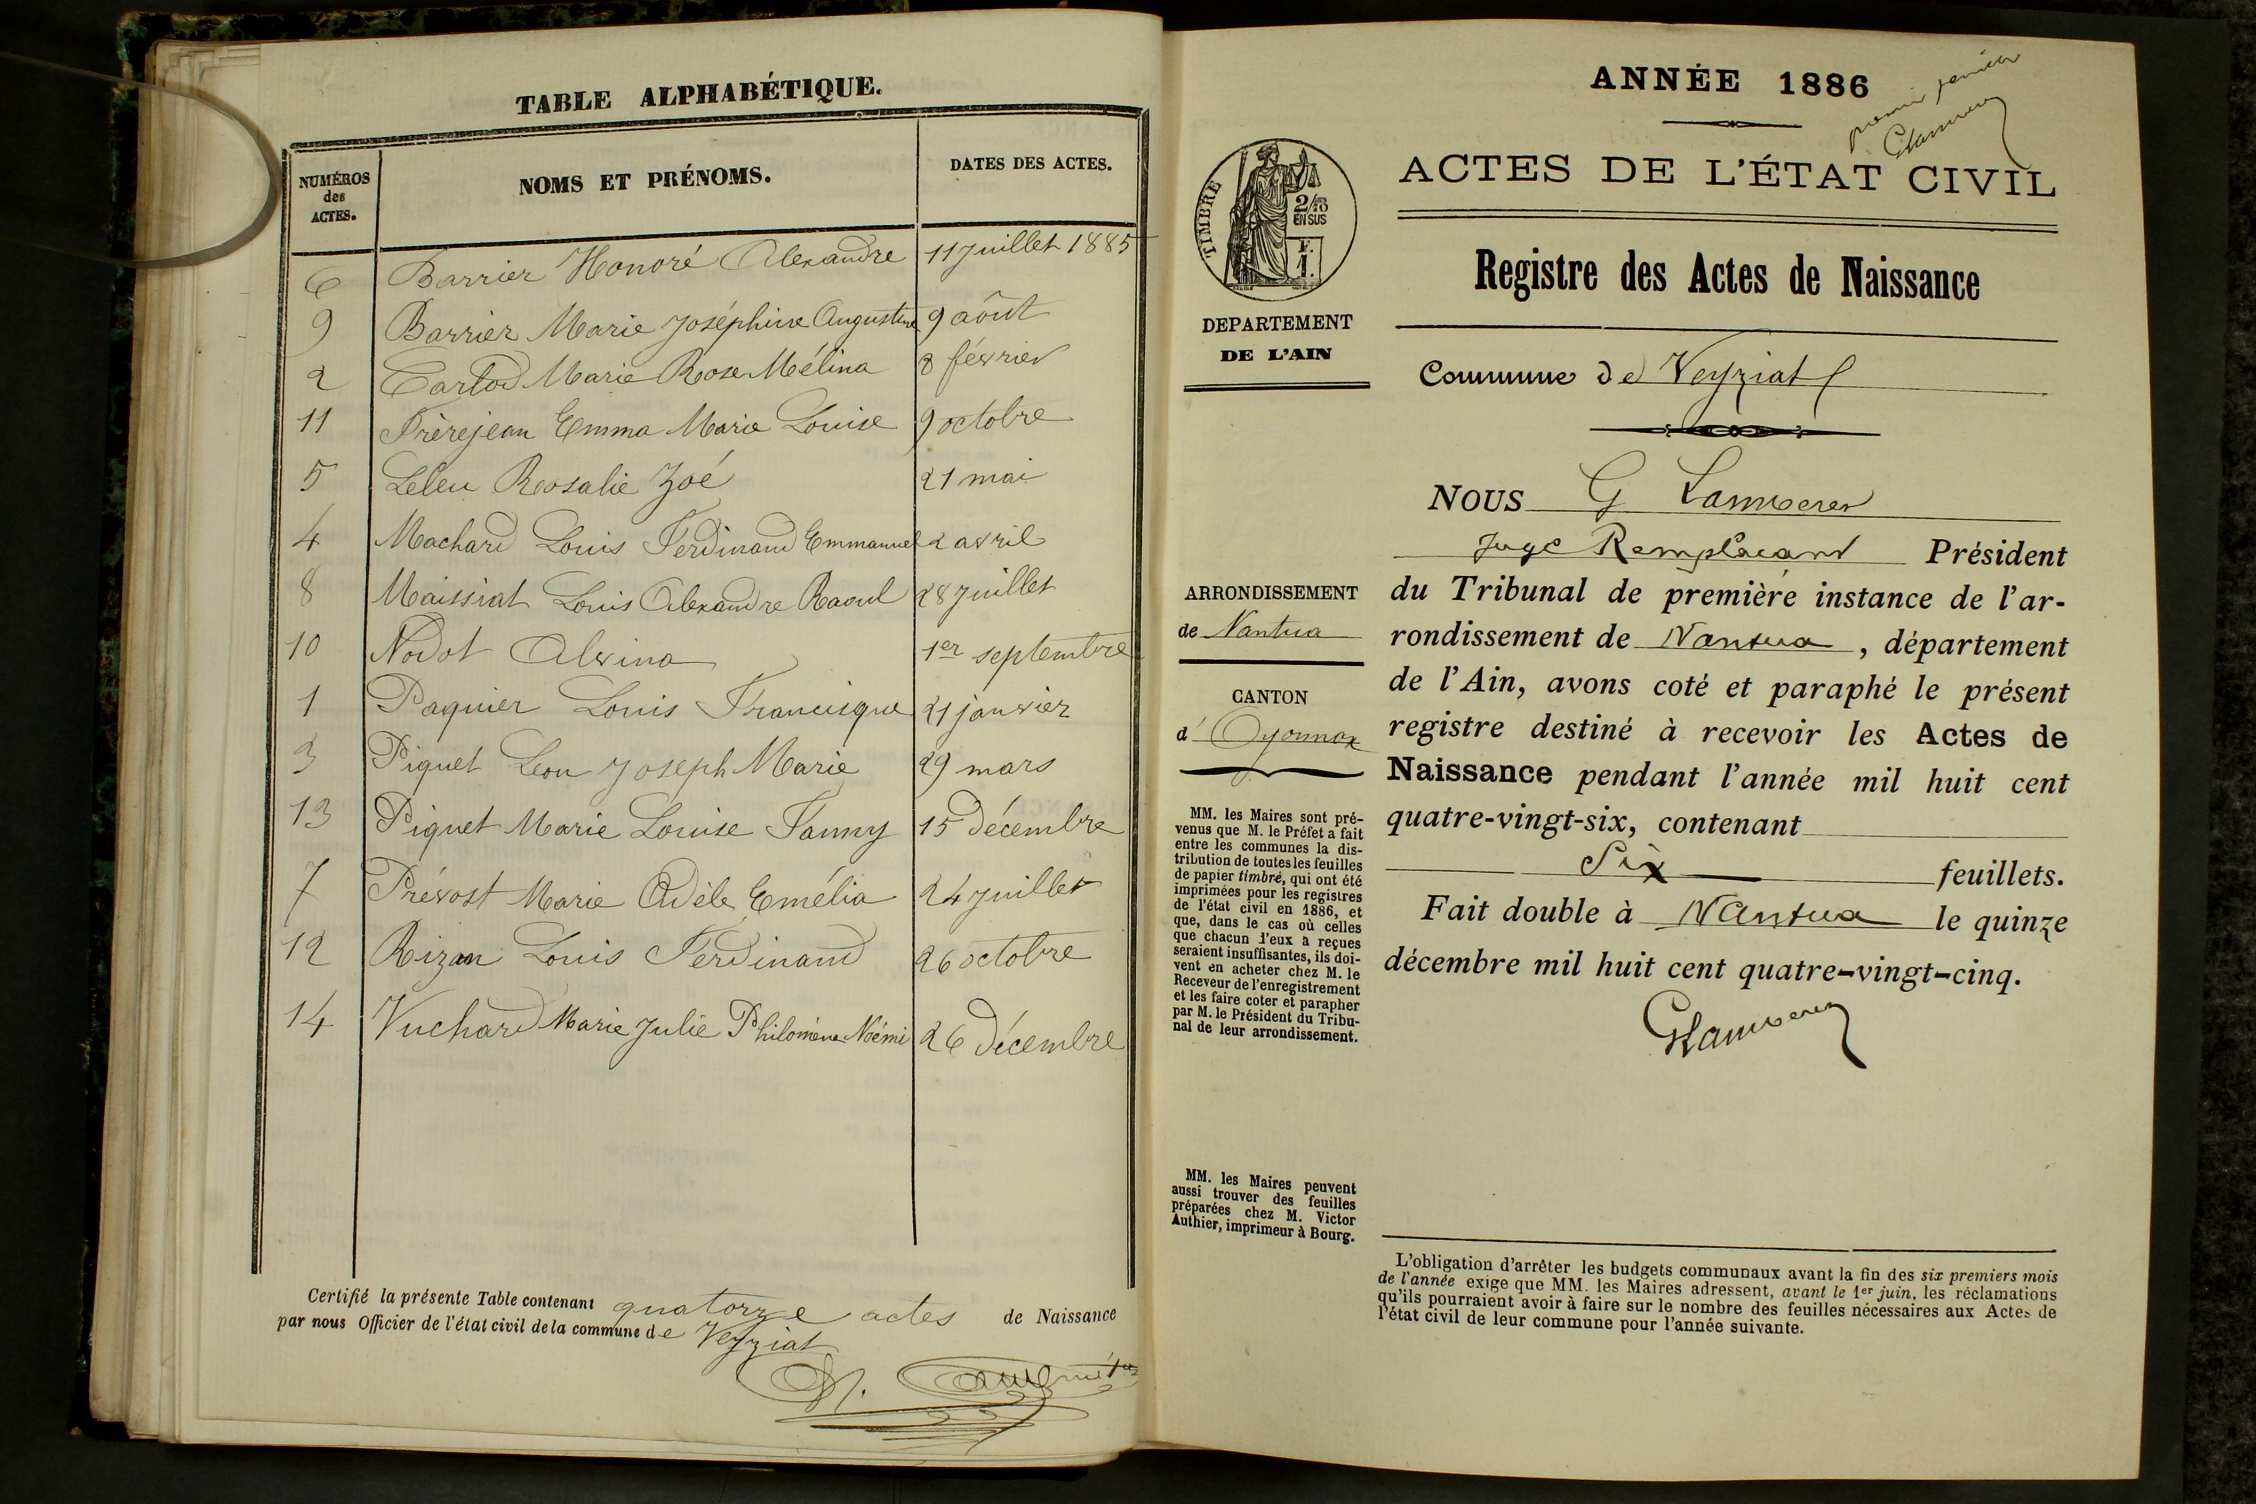 TABLE ALPHABÉTIQUE.
NUMÉROS
des
ACTES.
NOMS ET PRÉNOMS.
DATES DES ACTES.
6 Barrier Honoré Alexandre 11 Juillet 1885
9 Barrier Marie Joséphine Augustine 9 août
2 Carlod Marie Rose Mélina 8 février
11 Frèrejean Emma Marie Louise 9 octobre
5 Leleu Rosalie Zoé 21 mai
4 Machard Louis Ferdinand Emmanuel 2 avril
8 Maissiat Louis Alexandre Raoul 28 Juillet
10 Nodot Alvina 1er septembre
1 Paquier Louis Francisque 21 janvier
3 Piquet Leon Joseph Marie 29 mars
13 Piquet Marie Louise Fanny 15 Décembre
7 Prévost Marie Adèle Emélia 24 Juillet
12 Rizan Louis Ferdinand 26 octobre
14 Vuchard Marie Julie Philomène Noémi 26 Décembre
Certifié la présente Table contenant quatorze actes de Naissance
par nous Officier de l'état civil de la commune de Veyziat
ANNÉE 1886
premier
ACTES DE L'ÉTAT CIVIL
TIMBRE
2/10
EN SUS
F.
1.
Registre des Actes de Naissance
DEPARTEMENT
DE L'AIN
Commune de Veyziat
NOUS G
Juge Remplaçant Président
du Tribunal de première instance de l'ar-
rondissement de Nantua, département
de l'Ain, avons coté et paraphé le présent
registre destiné à recevoir les Actes de
Naissance pendant l'année mil huit cent
quatre-vingt-six, contenant
Six feuillets.
Fait double à Nantua le quinze
décembre mil huit cent quatre-vingt-cinq.
ARRONDISSEMENT
de Nantua
CANTON
d' Oyonnax
MM. les Maires sont pré-
venus que M. le Préfet a fait
entre les communes la dis-
tribution de toutes les feuilles
de papier timbré, qui ont été
imprimées pour les registres
de l'état civil en 1886, et
que, dans le cas où celles
que chacun d'eux a reçues
seraient insuffisantes, ils doi-
vent en acheter chez M. le
Receveur de l'enregistrement
et les faire coter et parapher
par M. le Président du Tribu-
nal de leur arrondissement.
MM. les Maires peuvent
aussi trouver des feuilles
préparées chez M. Victor
Authier, imprimeur à Bourg.
L'obligation d'arrêter les budgets communaux avant la fin des six premiers mois
de l'année exige que MM. les Maires adressent, avant le 1er juin, les réclamations
qu'ils pourraient avoir à faire sur le nombre des feuilles nécessaires aux Actes de
l'état civil de leur commune pour l'année suivante.